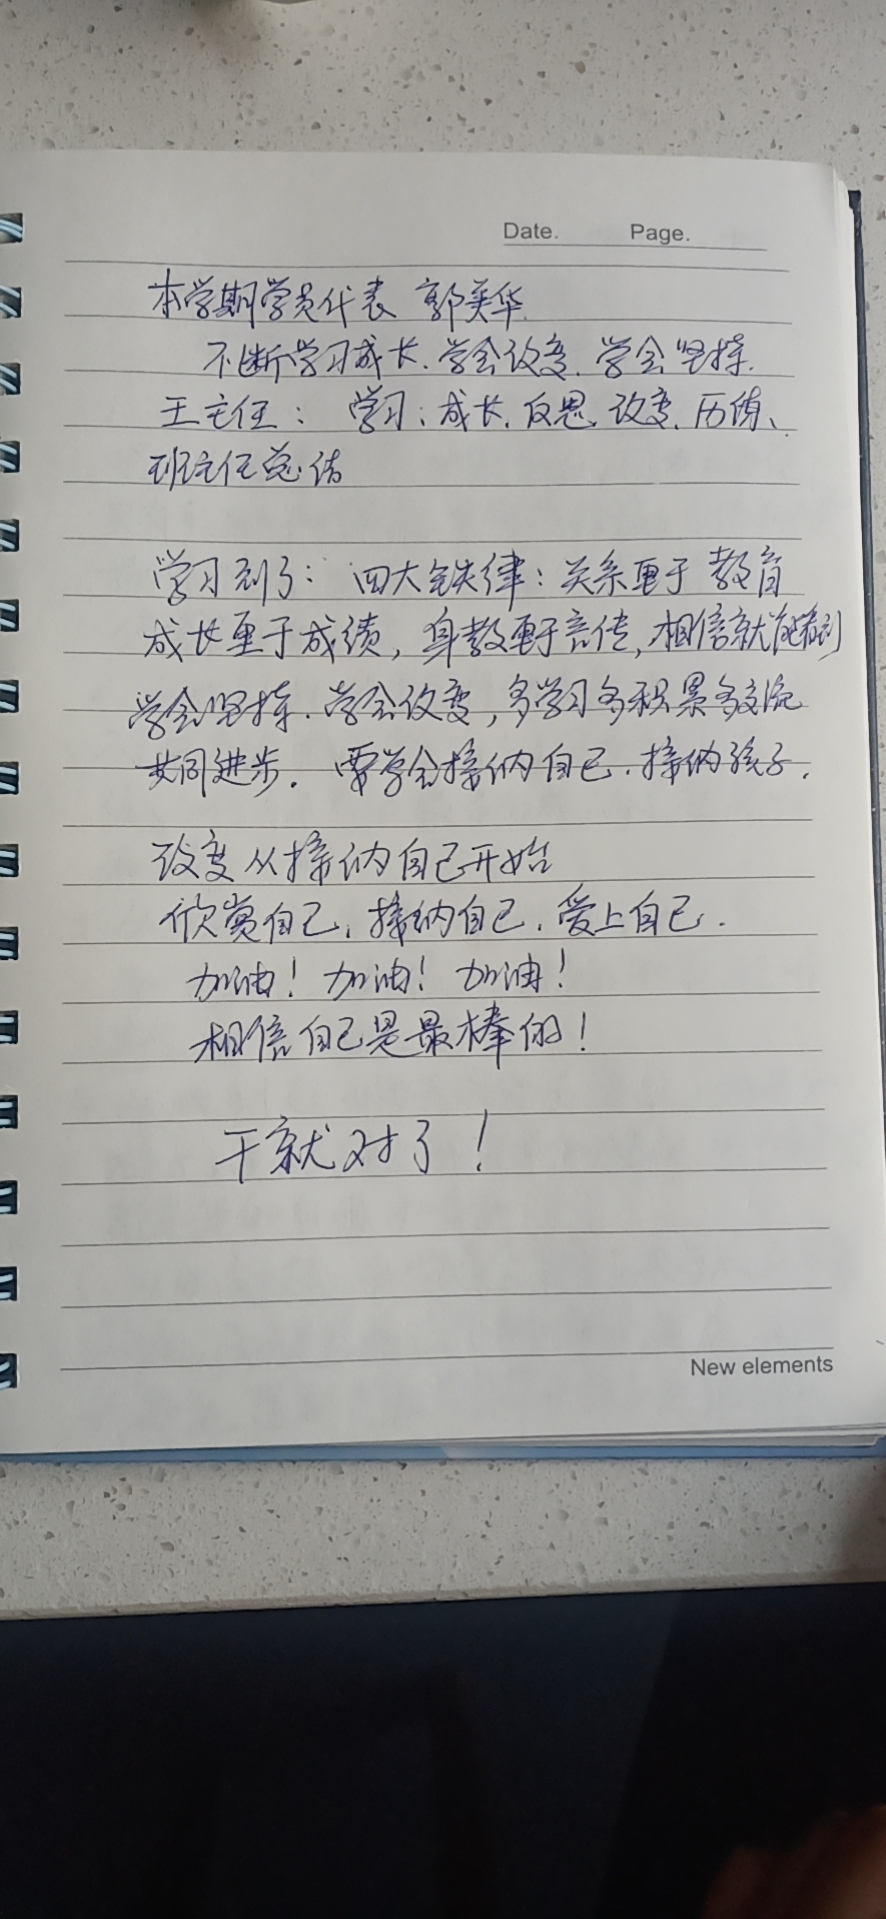 Date. Page.
本学期学员代表 郭英华.
不断学习成长.学会改变.学会坚持.
王主任: 学习;成长.反思.改变.历
班主任总结
学习到了: 四大铁律:关系重于教育
成长重于成绩,身教重于言传,相信就能看到
学会坚持.学会改变,多学习多积累多交流
共同进步. 要学会接纳自己.接纳孩子.
改变从接纳自己开始
欣赏自己,接纳自己.爱上自己.
加油!加油!加油!
相信自己是最棒的!
干就对了!
New elements